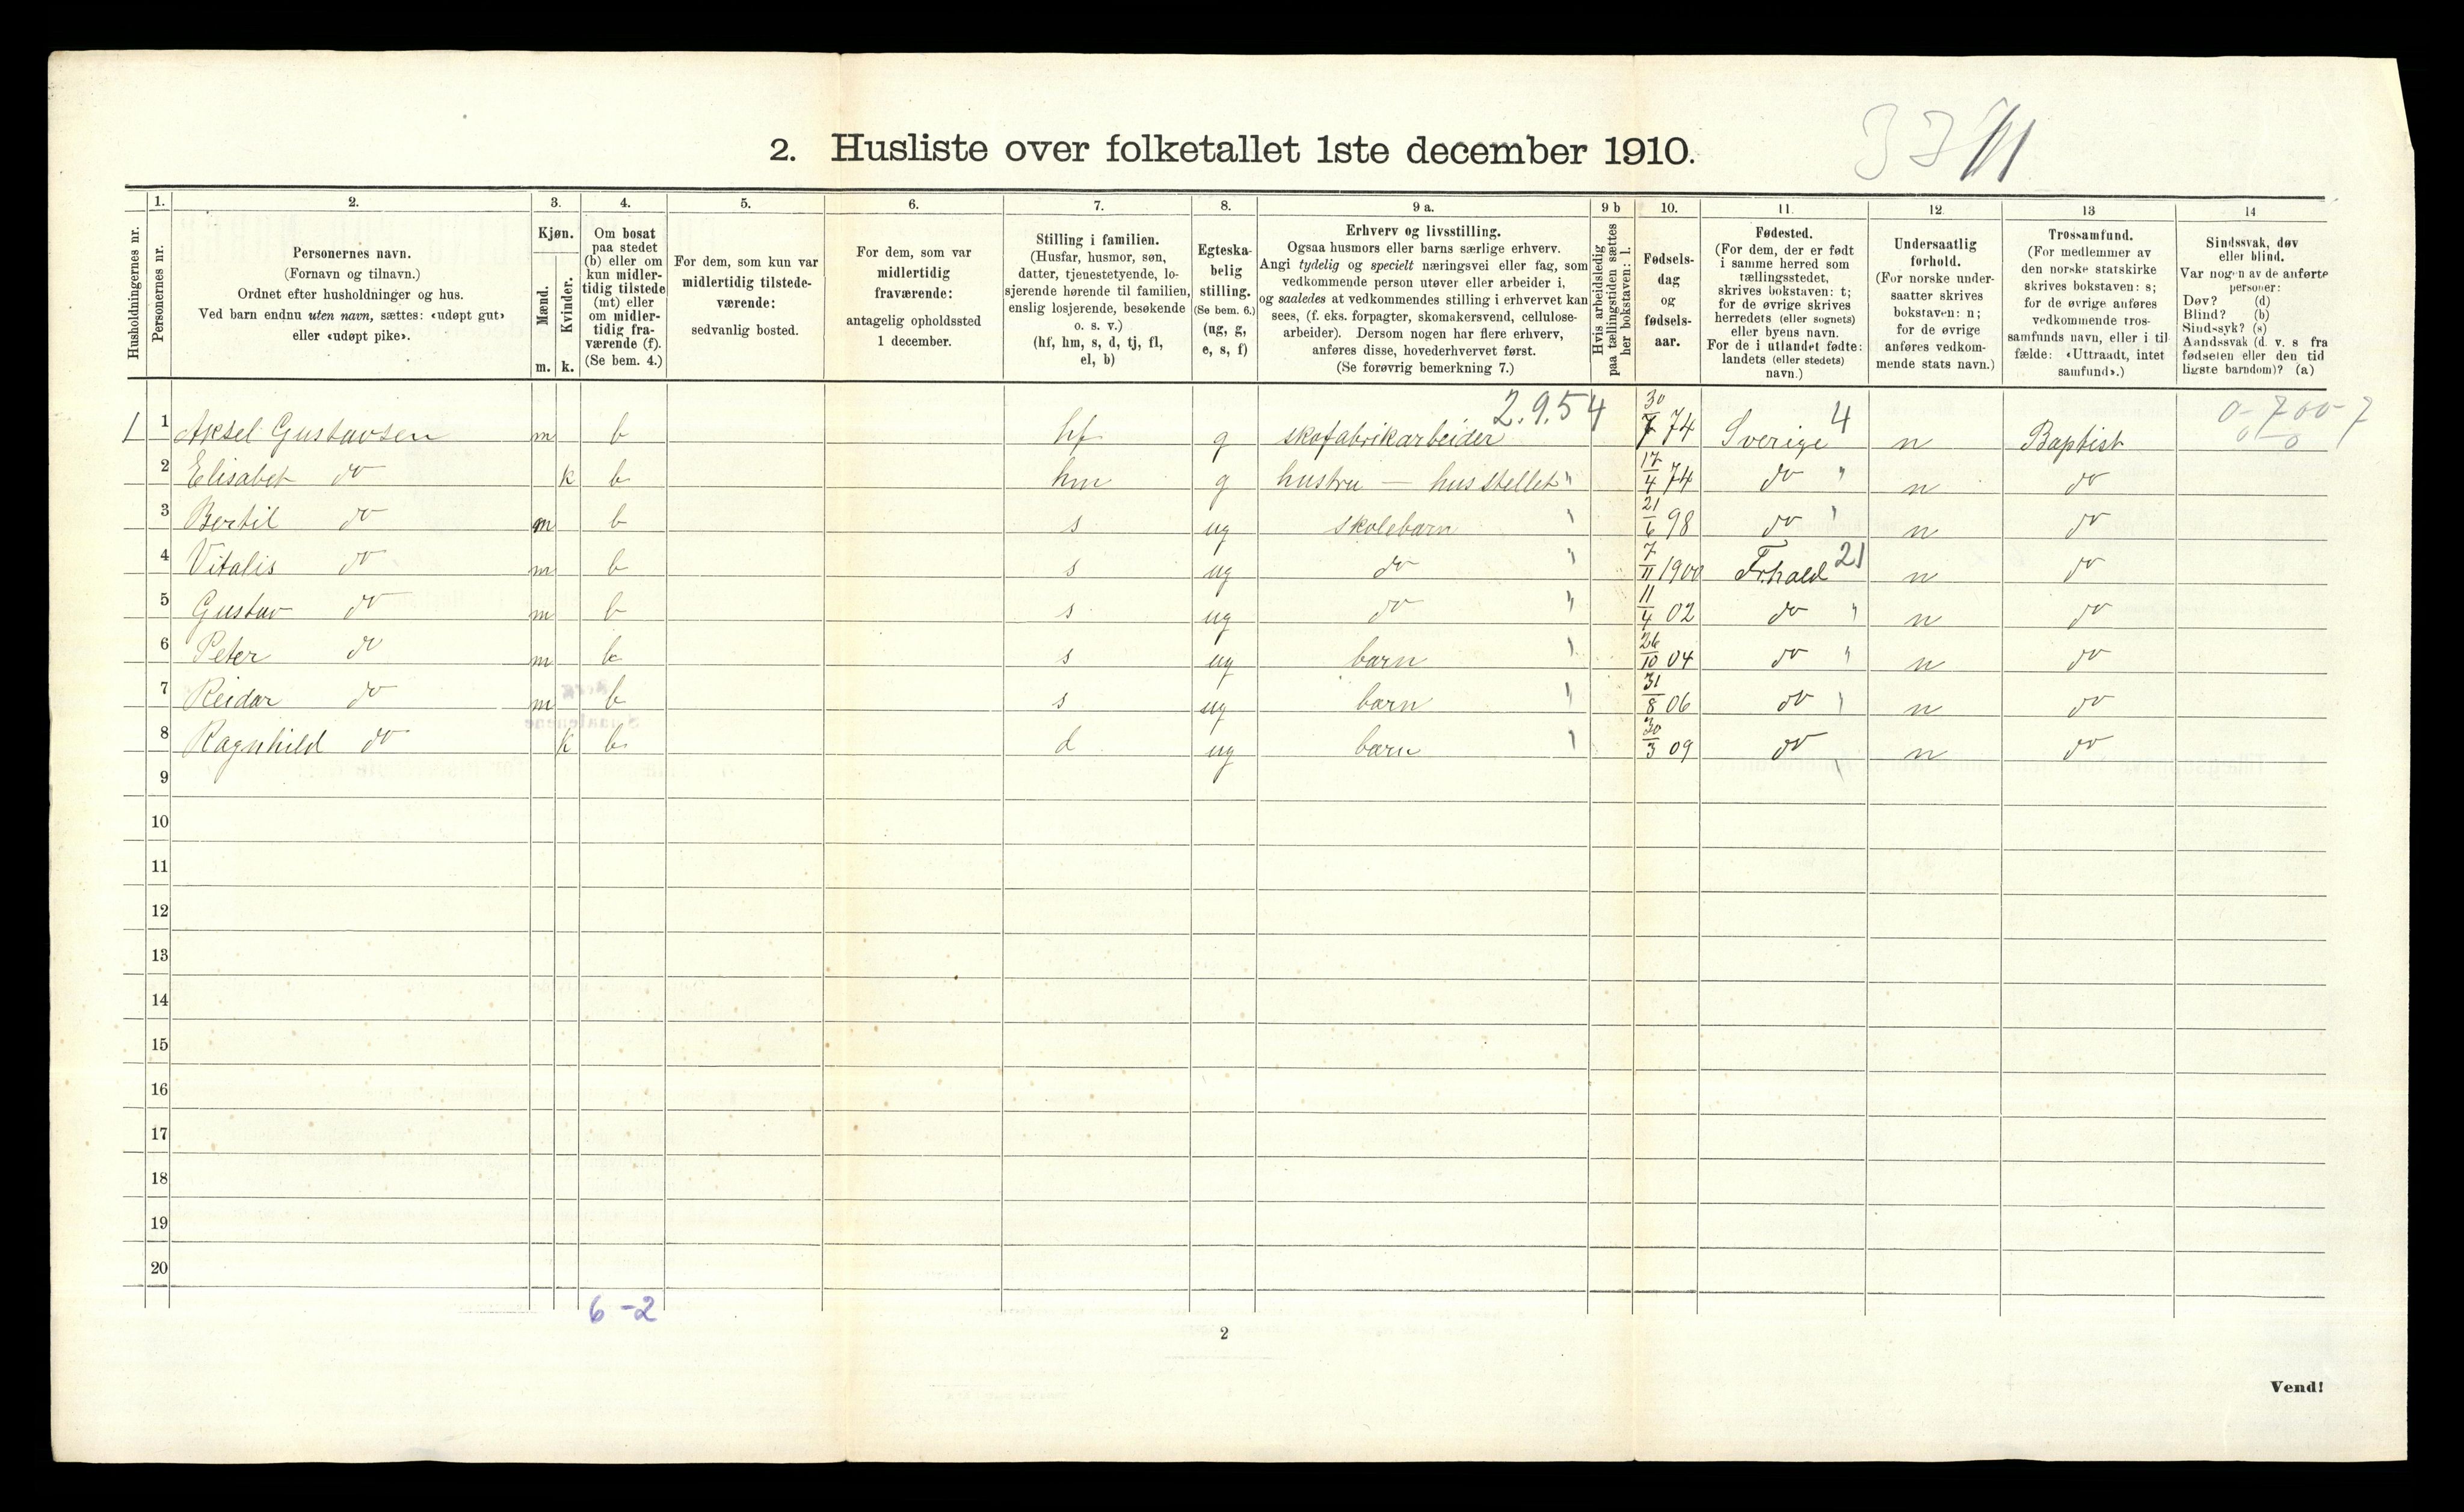 3711
2. Husliste over folketallet 1ste december 1910.
Husholdningernes nr.
1.
Personernes nr.
2.
Personernes navn.
(Fornavn og tilnavn.)
Ordnet efter husholdninger og hus.
Ved barn endnu uten navn, sættes: «udøpt gut»
eller «udøpt pike».
3.
Kjøn.
Mænd.
Kvinder.
m. k.
4.
Om bosat
paa stedet
(b) eller om
kun midler-
tidig tilstede
(mt) eller
om midler-
tidig fra-
værende (f).
(Se bem. 4.)
5.
For dem, som kun var
midlertidig tilstede-
værende:
sedvanlig bosted.
6.
For dem, som var
midlertidig
fraværende:
antagelig opholdssted
1 december.
7.
Stilling i familien.
(Husfar, husmor, søn,
datter, tjenestetyende, lo-
sjerende hørende til familien,
enslig losjerende, besøkende
o. s. v.)
(hf, hm, s, d, tj, fl,
el, b)
8.
Egteska-
belig
stilling.
(Se bem. 6.)
(ug, g,
e, s, f)
9 a.
Erhverv og livsstilling.
Ogsaa husmors eller barns særlige erhverv.
Angi tydelig og specielt næringsvei eller fag, som
vedkommende person utøver eller arbeider i,
og saaledes at vedkommendes stilling i erhvervet kan
sees, (f. eks. forpagter, skomakersvend, cellulose-
arbeider). Dersom nogen har flere erhverv,
anføres disse, hovederhvervet først.
(Se forøvrig bemerkning 7.)
9 b
Hvis arbeidsledig
paa tællingstiden sættes
her bokstaven: l.
10.
Fødsels-
dag
og
fødsels-
aar.
11.
Fødested.
(For dem, der er født
i samme herred som
tællingsstedet,
skrives bokstaven: t;
for de øvrige skrives
herredets (eller sognets)
eller byens navn.
For de i utlandet fødte:
landets (eller stedets)
navn.)
12.
Undersaatlig
forhold.
(For norske under-
saatter skrives
bokstaven: n;
for de øvrige
anføres vedkom-
mende stats navn.)
13
Trossamfund.
(For medlemmer av
den norske statskirke
skrives bokstaven: s;
for de øvrige anføres
vedkommende tros-
samfunds navn, eller i til-
fælde: «Uttraadt, intet
samfund».)
14
Sindssvak, døv
eller blind.
Var nogen av de anførte
personer:
Døv? (d)
Blind? (b)
Sindssyk? (s)
Aandssvak (d. v. s fra
fødselen eller den tid
ligste barndom)? (a)
2.9.54 4 0-700-7
0-0
1 1 Aksel Gustavsen m b hf g skofabrikarbeider 30/7 74 Sverige n Baptist
2 Elisabet do k b hm g hustru - husstellet " 17/4 74 do " n do
3 Bertil do m b s ug skolebarn " 21/6 98 do " n do
4 Vitalis do m b s ug do " 7/11 1900 Frhald 21 n do
5 Gustav do m b s ug do " 11/4 02 do " n do
6 Peter do m b s ug barn " 26/10 04 do " n do
7 Reidar do m b s ug barn " 31/8 06 do " n do
8 Ragnhild do k b d ug barn " 30/3 09 do n do
9
10
11
12
13
14
15
16
17
18
19
20
6-2
2
Vend!